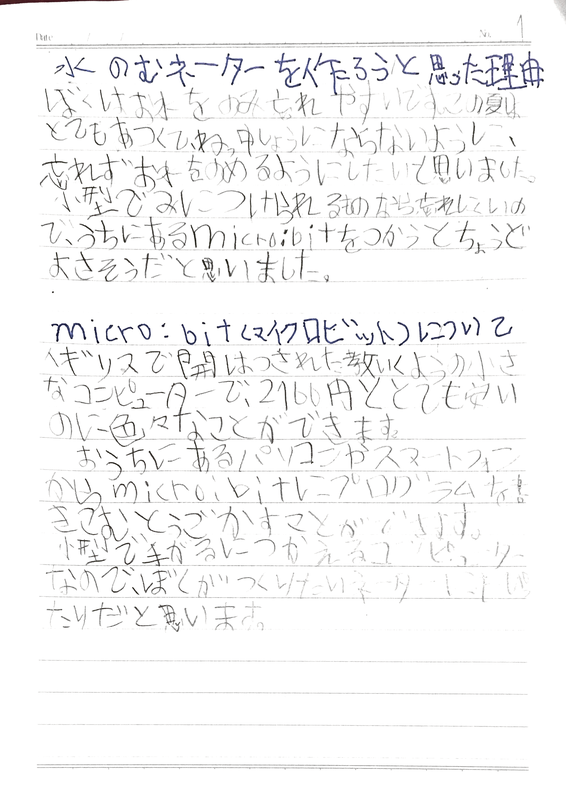 Date
No. 1
水のむネーターを作ろうと思った理由
ぼくはお水をのみ忘れやすいです。この夏は、
とてもあつくて、ねっ中しょうにならないように、
忘れずお水をのめるようにしたいと思いました。
小型でみにつけられるものなら忘れしないの
で、うちにあるmicro:bitをつかうとちょうど
よさそうだと思いました。
micro:bit(マイクロビット)について
イギリスで開はつされた教いくようの小さ
なコンピューターで、2166円ととても安い
のに色々なことができます
おうちにあるパソコンやスマートフォン
からmicro:bitにプログラムを
きこむとうごかすことができます。
小型で手がるにつかえるコンピューター
なので、ぼくがつくりたい
たりだと思います。